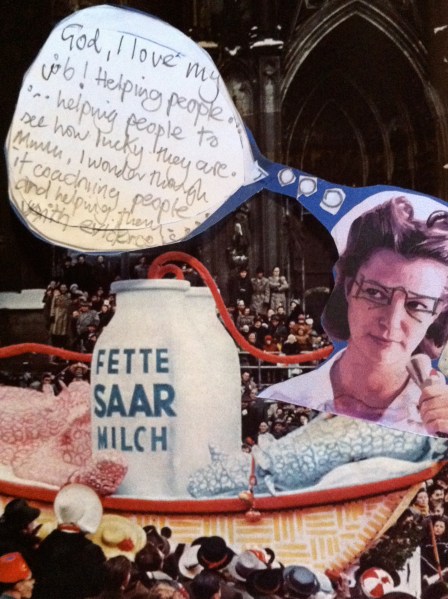 God, I love my
job! Helping people
... helping people to
see how lucky they are.
Mmmm, I wonder though
if coaching people
and helping them
FETTE
SAAR
MILCH